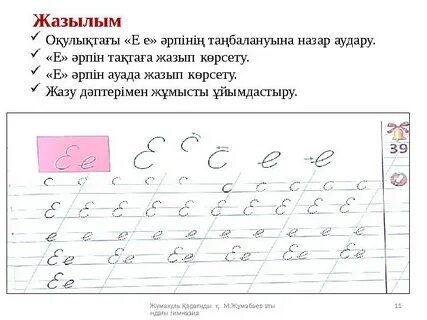 Жазылым
✓ Оқулықтағы «Е е» әрпінің таңбалануына назар аудару.
✓ «Е» әрпін тақтаға жазып көрсету.
✓ «Е» әрпін ауада жазып көрсету.
✓ Жазу дәптерімен жұмысты ұйымдастыру.
Ее Е с с е е
39
с с с с с с с с с
Е Е Е Е Е Е Е Е Е
е е е е е е е е е
Ее Ее Ее Ее Ее
Ее
Жумакуль Қарағнды қ, М.Жумабаев аты
ндағы гимназия
11